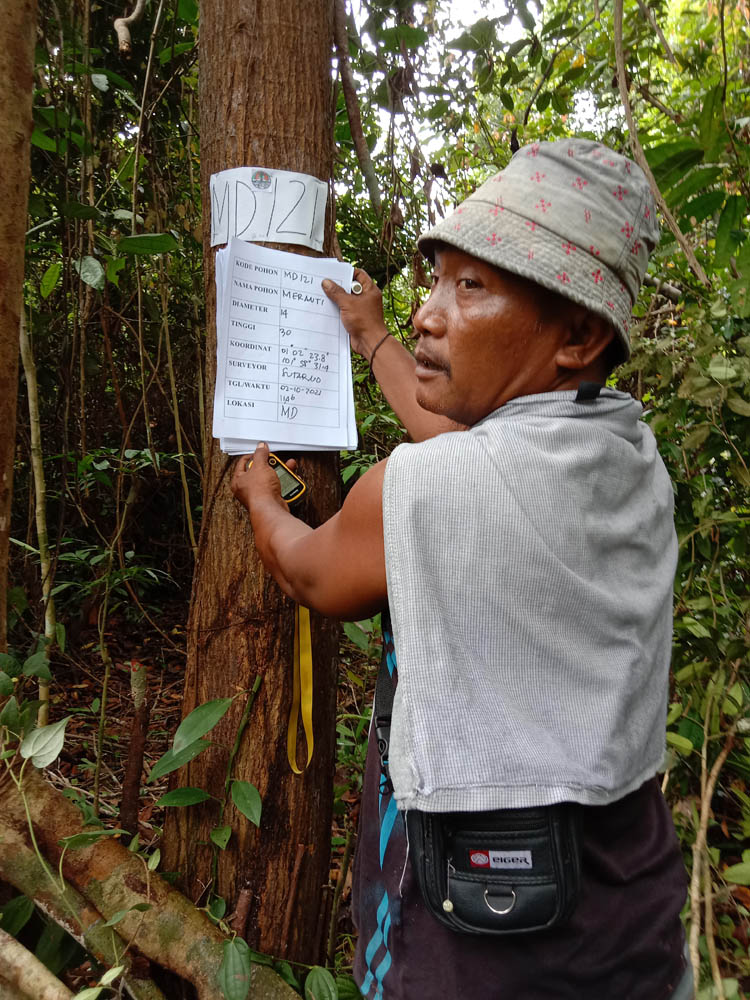 MD 121
KODE POHON MD121
NAMA POHON MERANTI
DIAMETER 14
TINGGI 30
KOORDINAT 01° 02' 23.8"
101° 58' 31.4
SURVEYOR SUTARNO
TGL/WAKTU 02-10-2021
1146
LOKASI MD
EIGER